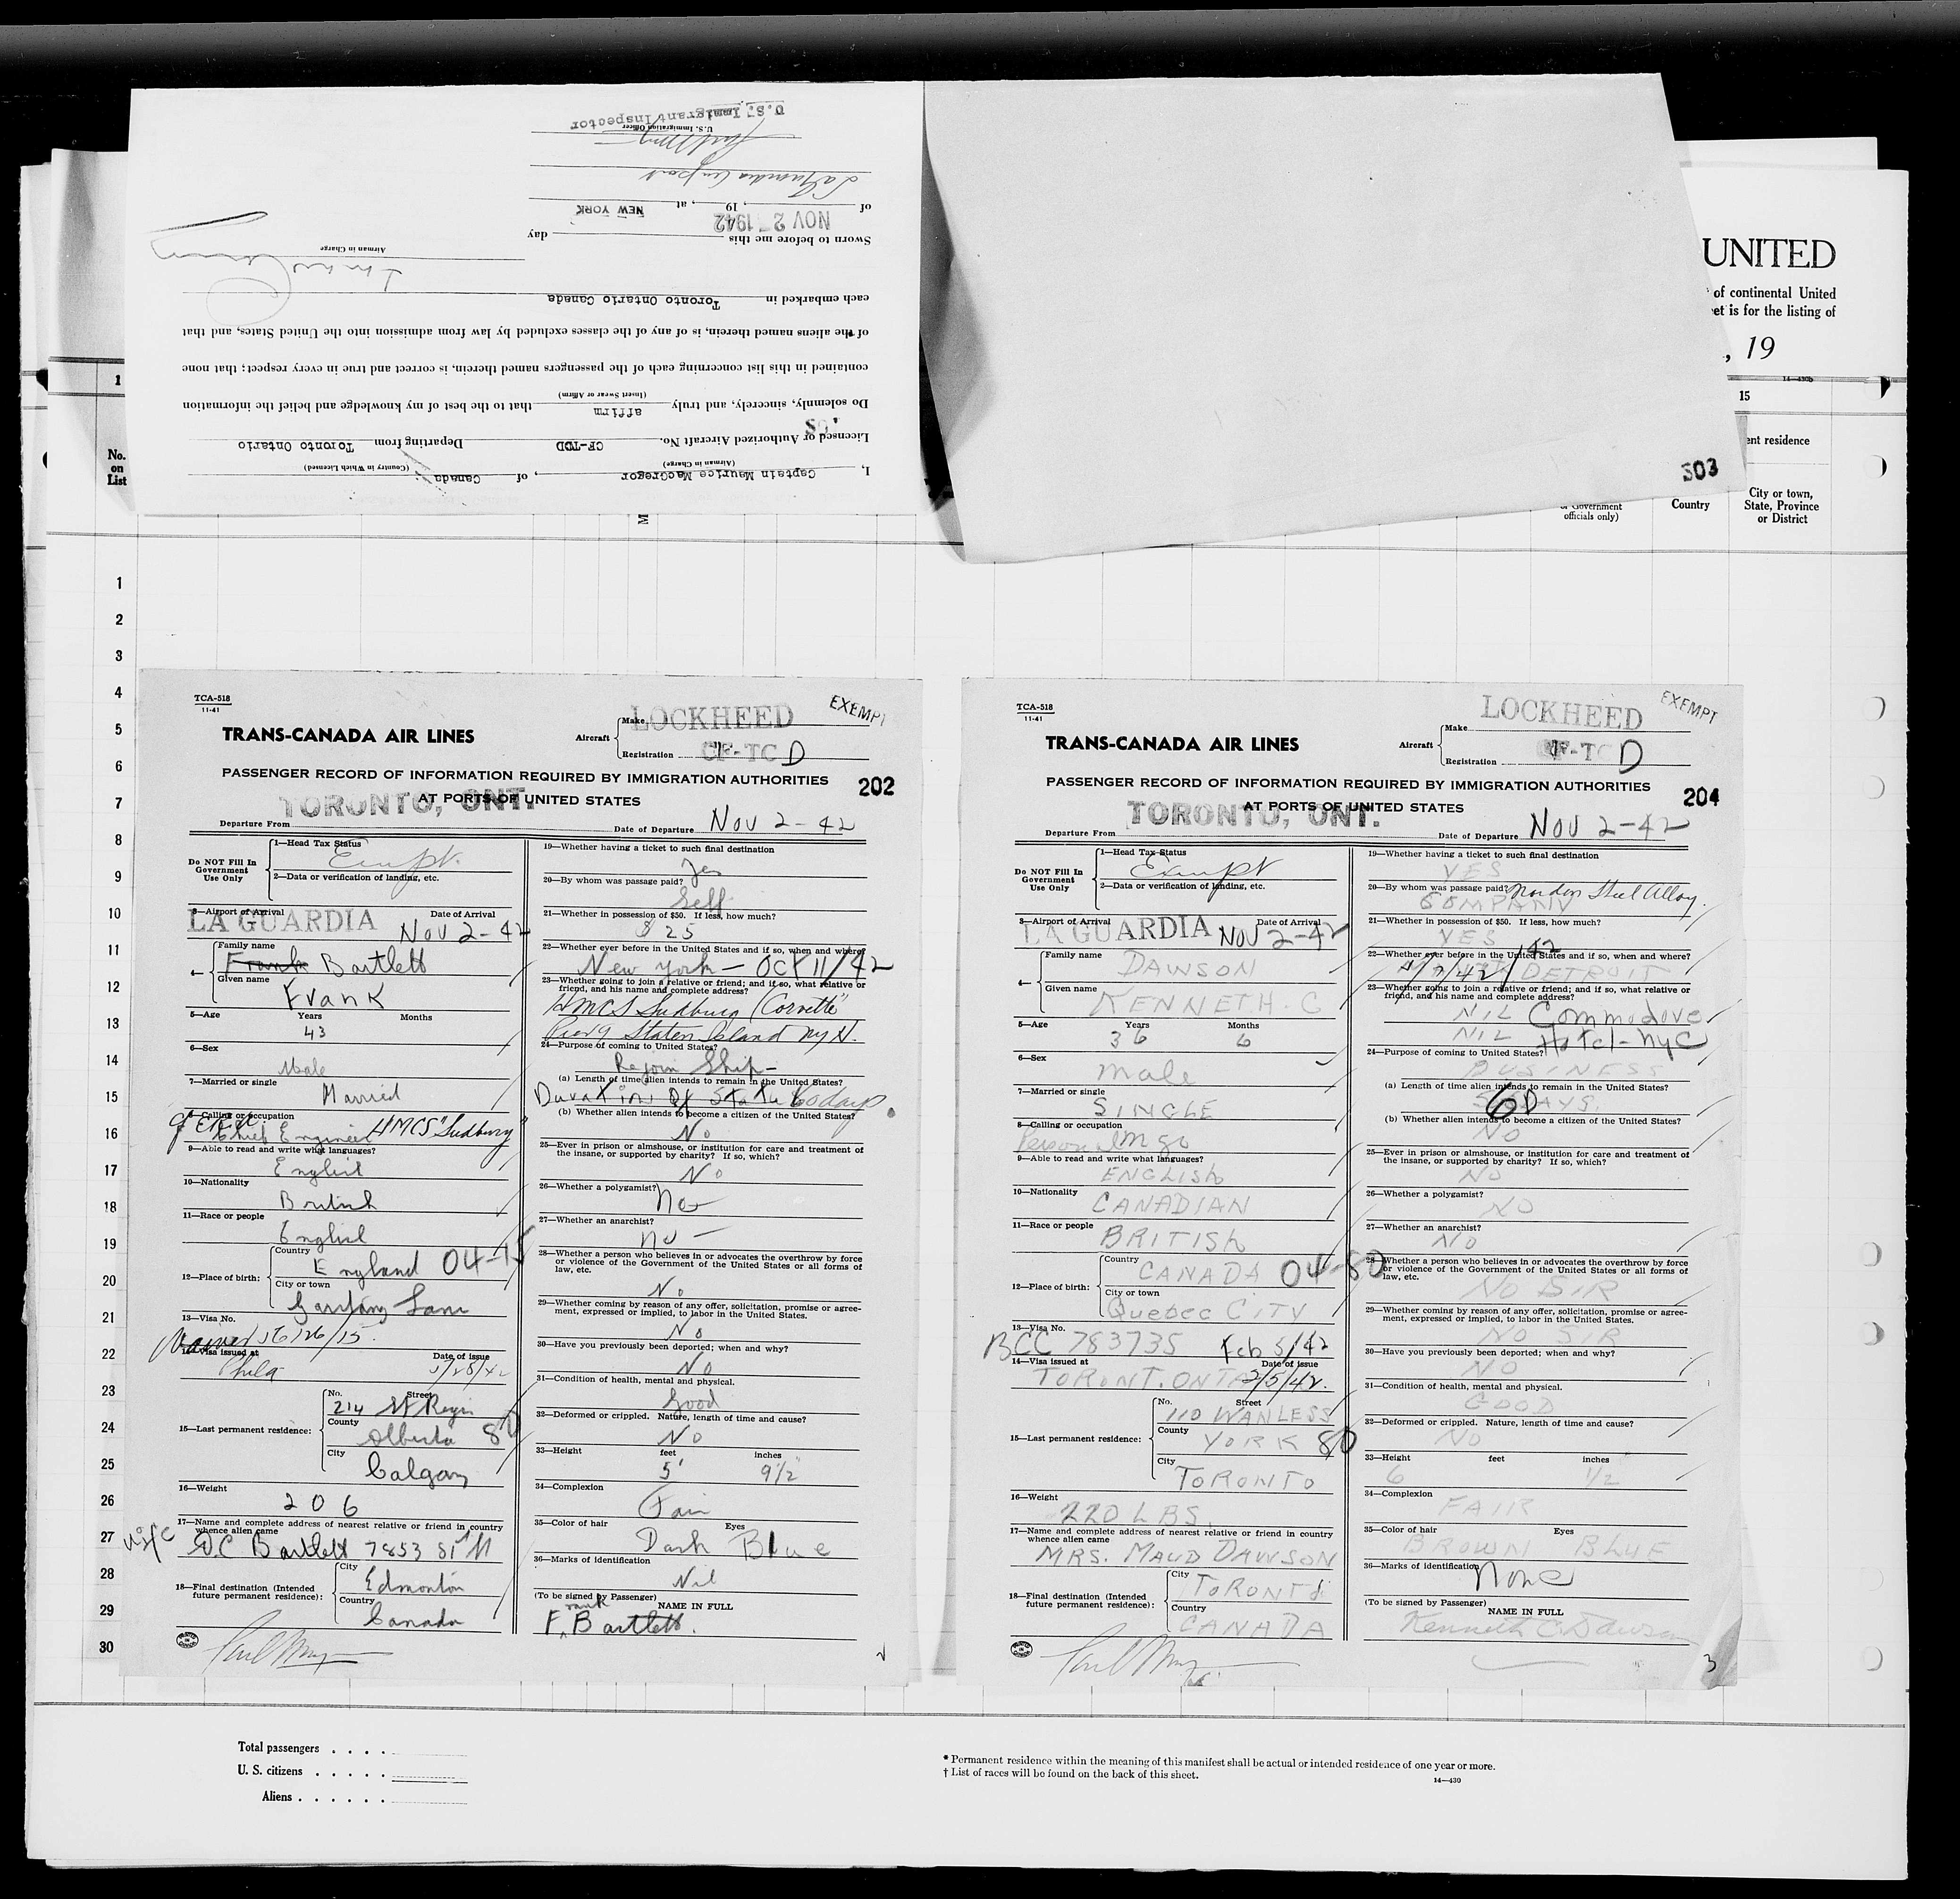 U.S. Immigrant Inspector
U.S. Immigration Officer
LaGuardia Airport
of , 19 , at NEW YORK
NOV 2 1942
Sworn to before me this day
Airman in Charge
each embarked in Toronto Ontario Canada
of the aliens named therein, is of any of the classes excluded by law from admission into the United States, and that
contained in this list concerning each of the passengers named therein, is correct and true in every respect; that none
(Insert Swear or Affirm)
Do solemnly, sincerely, and truly affirm that to the best of my knowledge and belief the information
Licensed or Authorized Aircraft No. CF-TCD Departing from Toronto Ontario
(Airman in Charge) (Country in Which Licensed)
I, Captain Maurice MacGregor, of Canada
303
UNITED
of continental United
et is for the listing of
, 19
14—430b
15
ent residence
Government
officials only)
Country
City or town,
State, Province
or District
1
No.
on
List
M
1
2
3
4
5
6
7
8
9
10
11
12
13
14
15
16
17
18
19
20
21
22
23
24
25
26
27
28
29
30
TCA-518
11-41
TRANS-CANADA AIR LINES
Aircraft
Make LOCKHEED
Registration CF-TC D
EXEMPT
PASSENGER RECORD OF INFORMATION REQUIRED BY IMMIGRATION AUTHORITIES
AT PORTS OF UNITED STATES
202
Departure From TORONTO, ONT.
Date of Departure Nov 2-42
Do NOT Fill In
Government
Use Only
1—Head Tax Status
Exmpt.
2—Data or verification of landing, etc.
3—Airport of Arrival Date of Arrival
LA GUARDIA Nov 2-42
4—
Family name
Frank Bartlett
Given name
Frank
5—Age Years Months
43
6—Sex
Male
7—Married or single
Married
8—Calling or occupation
Chief Engineer HMCS "Sudbury"
9—Able to read and write what languages?
English
10—Nationality
British
11—Race or people
English
12—Place of birth:
Country
England 04-15
City or town
13—Visa No.
14—Visa issued at Date of issue
Phila 5/28/42
15—Last permanent residence:
No. Street
214 St Regis
County
Alberta 80
City
Calgary
16—Weight
206
17—Name and complete address of nearest relative or friend in country
whence alien came
Bartlett 7853
18—Final destination (Intended
future permanent residence):
City
Edmonton
Country
Canada
19—Whether having a ticket to such final destination
Yes
20—By whom was passage paid?
Self
21—Whether in possession of $50. If less, how much?
$25
22—Whether ever before in the United States and if so, when and where?
New York — Oct 11/42
23—Whether going to join a relative or friend; and if so, what relative or
friend, and his name and complete address?
HMCS Sudbury (Corvette)
Staten Island N.Y.
24—Purpose of coming to United States?
Rejoin Ship—
(a) Length of time alien intends to remain in the United States?
Duration of Status 60 days
(b) Whether alien intends to become a citizen of the United States?
No
25—Ever in prison or almshouse, or institution for care and treatment of
the insane, or supported by charity? If so, which?
No
26—Whether a polygamist?
No
27—Whether an anarchist?
no —
28—Whether a person who believes in or advocates the overthrow by force
or violence of the Government of the United States or all forms of
law, etc.
No
29—Whether coming by reason of any offer, solicitation, promise or agree-
ment, expressed or implied, to labor in the United States.
No
30—Have you previously been deported; when and why?
NO
31—Condition of health, mental and physical.
Good
32—Deformed or crippled. Nature, length of time and cause?
NO
33—Height feet inches
5' 9½"
34—Complexion
Fair
35—Color of hair Eyes
Dark Blue
36—Marks of identification
Nil
(To be signed by Passenger)
NAME IN FULL
Frank Bartlett.
TCA-518
11-41
TRANS-CANADA AIR LINES
Aircraft
Make LOCKHEED
Registration CF-TC D
EXEMPT
PASSENGER RECORD OF INFORMATION REQUIRED BY IMMIGRATION AUTHORITIES
AT PORTS OF UNITED STATES
204
Departure From TORONTO, ONT.
Date of Departure Nov 2-42
Do NOT Fill In
Government
Use Only
1—Head Tax Status
Exmpt
2—Data or verification of landing, etc.
3—Airport of Arrival Date of Arrival
LA GUARDIA Nov 2-42
4—
Family name
DAWSON
Given name
KENNETH. C
5—Age Years Months
36 6
6—Sex
male
7—Married or single
SINGLE
8—Calling or occupation
Personnel Mgr
9—Able to read and write what languages?
ENGLISH
10—Nationality
CANADIAN
11—Race or people
BRITISH
12—Place of birth:
Country
CANADA 04-80
City or town
Quebec CITY
13—Visa No.
BCC 783735 Feb 5/42
14—Visa issued at Date of issue
TORONT. ONTA 2/5/42.
15—Last permanent residence:
No. Street
110 WANLESS
County
YORK 80
City
TORONTO
16—Weight
220 LBS.
17—Name and complete address of nearest relative or friend in country
whence alien came
MRS. MAUD DAWSON
18—Final destination (Intended
future permanent residence):
City
TORONTO
Country
CANADA
19—Whether having a ticket to such final destination
YES
20—By whom was passage paid? Steel Alloy.
COMPANY
21—Whether in possession of $50. If less, how much?
YES
22—Whether ever before in the United States and if so, when and where?
DETROIT
23—Whether going to join a relative or friend; and if so, what relative or
friend, and his name and complete address?
NIL Commodore
NIL Hotel - NYC
24—Purpose of coming to United States?
BUSINESS
(a) Length of time alien intends to remain in the United States?
6D DAYS.
(b) Whether alien intends to become a citizen of the United States?
NO
25—Ever in prison or almshouse, or institution for care and treatment of
the insane, or supported by charity? If so, which?
NO
26—Whether a polygamist?
NO
27—Whether an anarchist?
NO
28—Whether a person who believes in or advocates the overthrow by force
or violence of the Government of the United States or all forms of
law, etc.
NO SIR
29—Whether coming by reason of any offer, solicitation, promise or agree-
ment, expressed or implied, to labor in the United States.
NO SIR
30—Have you previously been deported; when and why?
NO
31—Condition of health, mental and physical.
GOOD
32—Deformed or crippled. Nature, length of time and cause?
NO
33—Height feet inches
6 1/2"
34—Complexion
FAIR
35—Color of hair Eyes
BROWN BLUE
36—Marks of identification
None
(To be signed by Passenger)
NAME IN FULL
Kenneth C. Dawson
3
Total passengers . . . .
U. S. citizens . . . . .
Aliens . . . . . .
* Permanent residence within the meaning of this manifest shall be actual or intended residence of one year or more.
† List of races will be found on the back of this sheet.
14—430